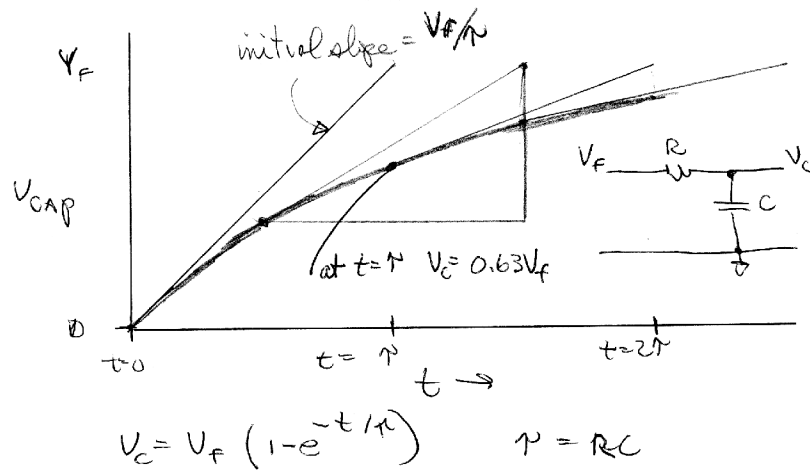 initial slope = Vf/τ
VF
VCAP
0
at t=τ Vc= 0.63Vf
Vf
R
Vc
C
t=0
t= τ
t=2τ
t →
Vc= VF (1-e^-t/τ)
τ = RC